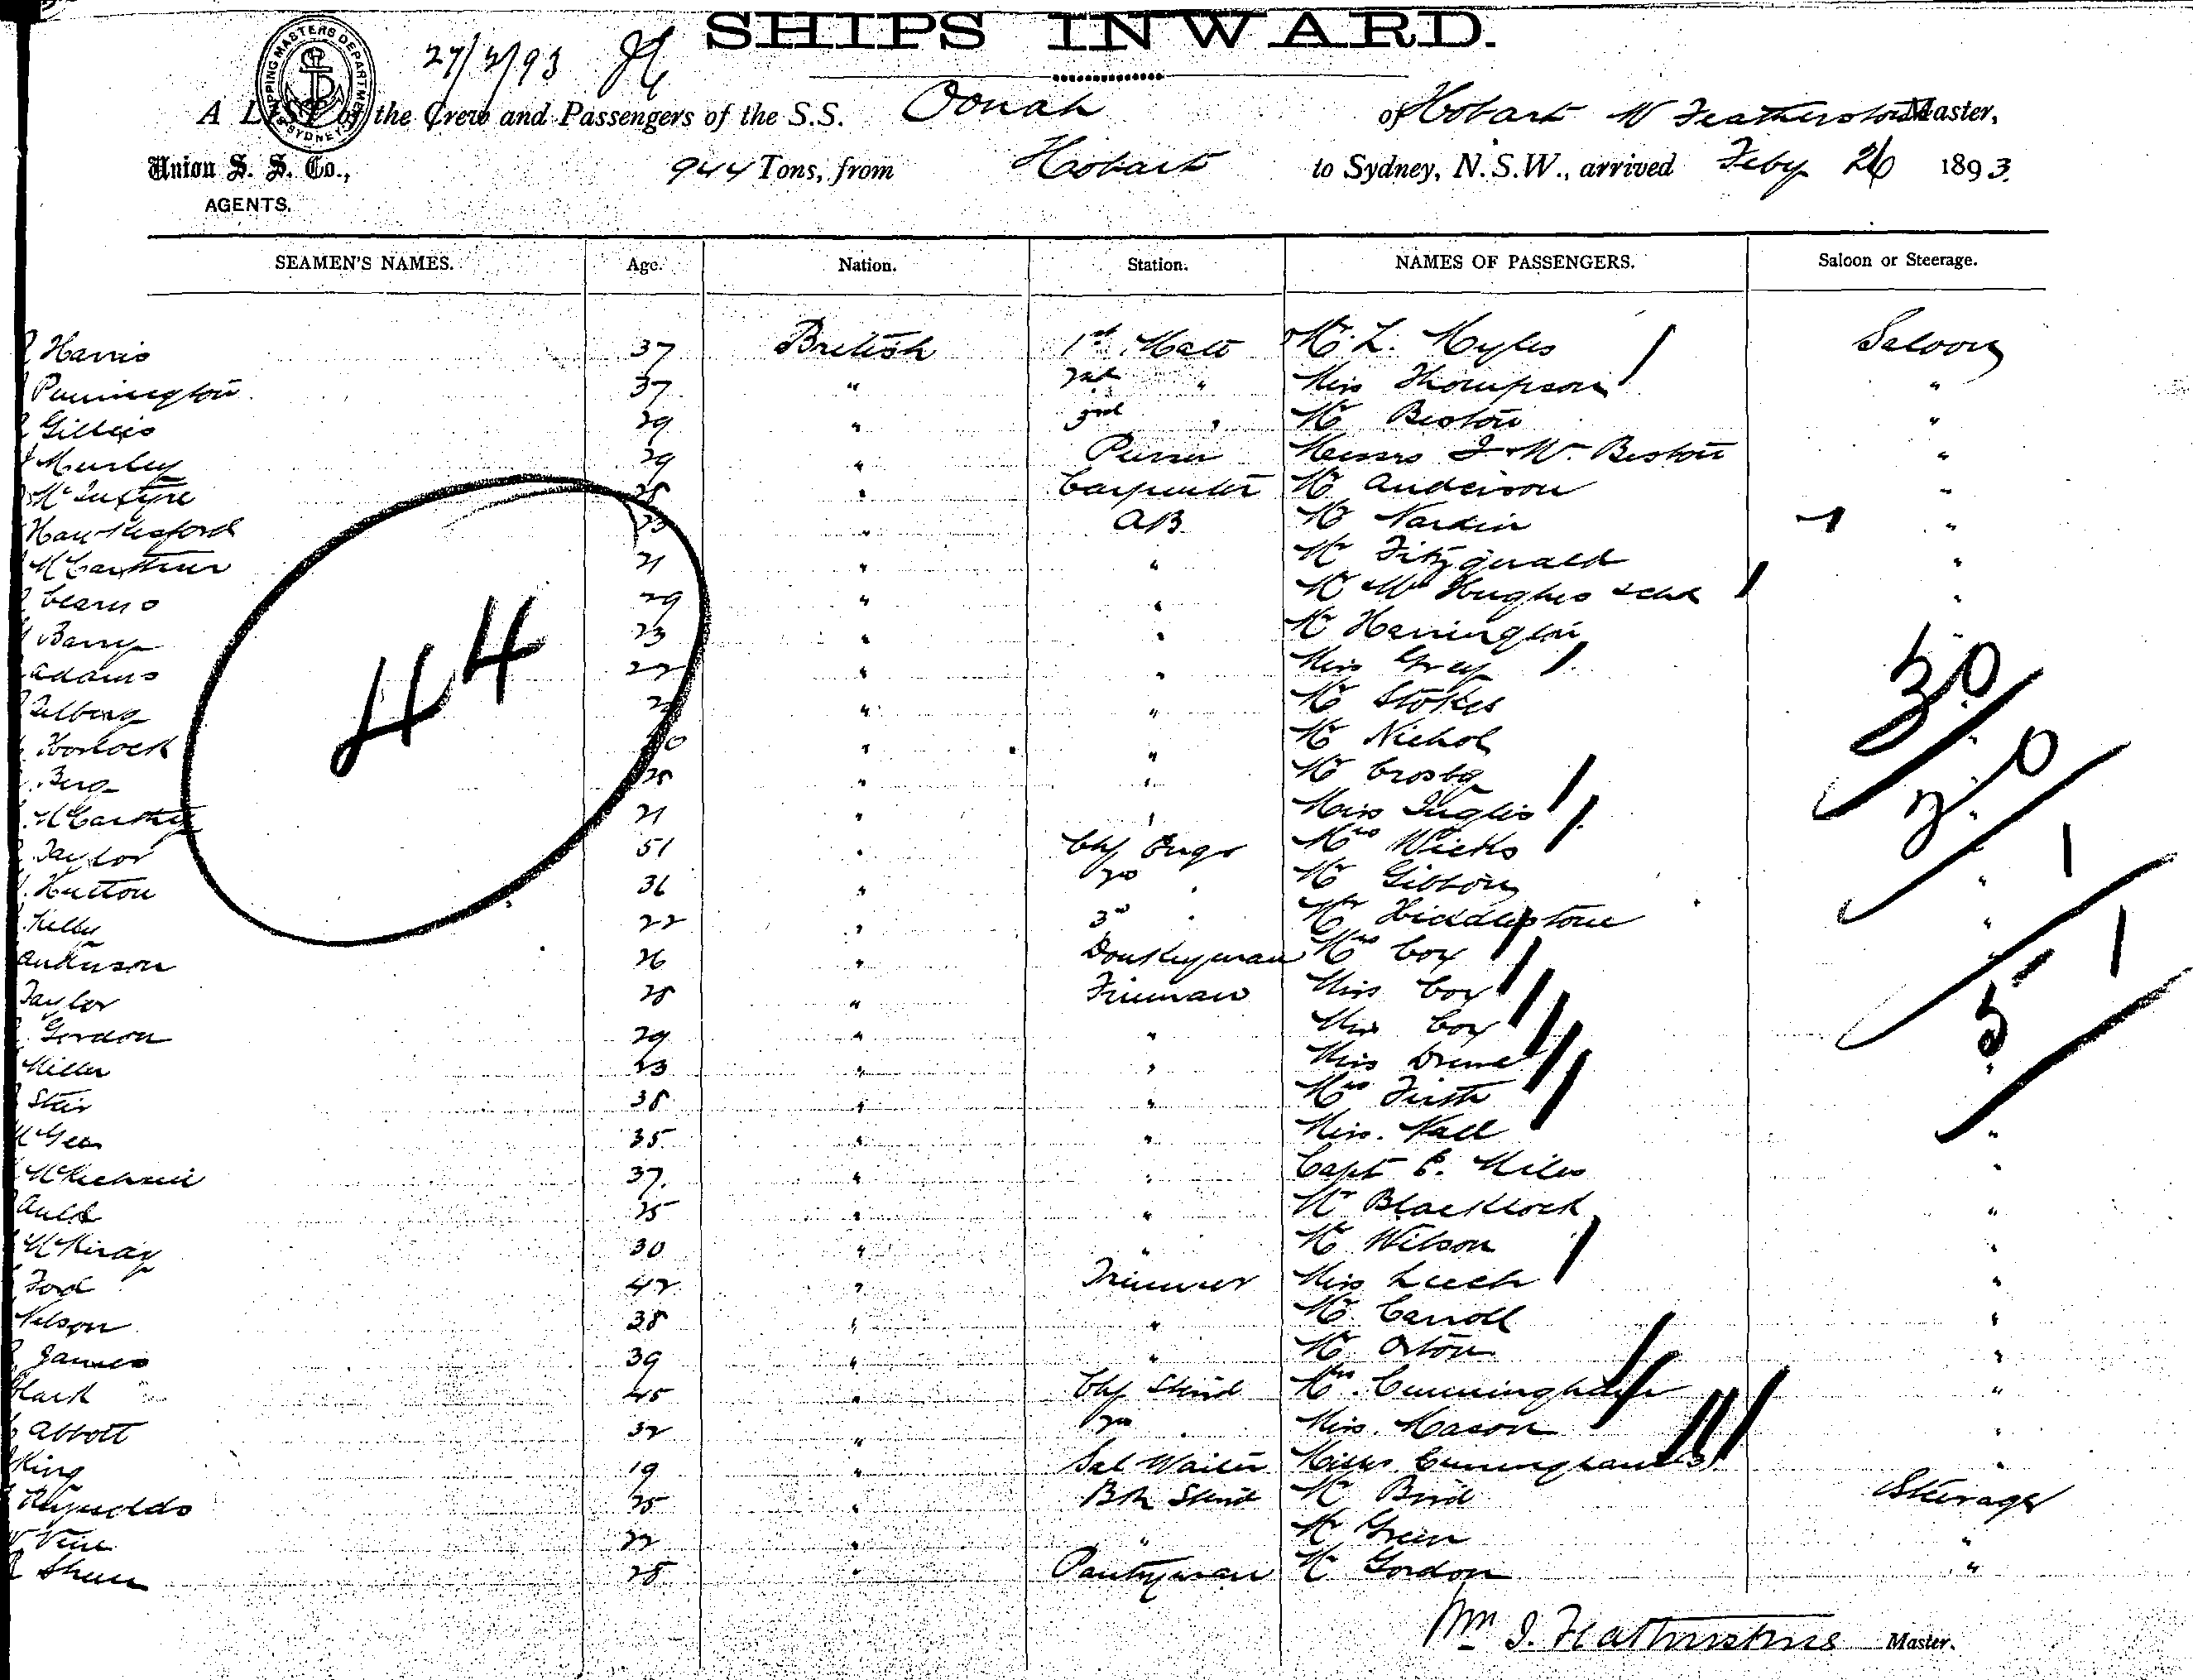 SHIPS INWARD.
27/2/93
SHIPPING MASTERS DEPARTMENT SYDNEY
A LIST of the Crew and Passengers of the S.S. Oonah of Hobart W Featherstone Master,
Union S. S. Co., AGENTS. 944 Tons, from Hobart to Sydney, N.S.W., arrived Feby 26 1893.
SEAMEN'S NAMES. Age. Nation. Station. NAMES OF PASSENGERS. Saloon or Steerage.
Harris 37 British 1st Mate Mr. L. Myles Saloon
Pennington 37 " 2nd " Miss Thompson "
Gillies 29 " 3rd " Mr Beston "
Murley 29 " Purser Messrs J & W. Beston "
McIntyre 28 " Carpenter Mr Anderson "
Hawkesford " AB Mr Nardin "
McCarthur 21 " " Mr Fitzgerald "
29 " " Mr & Mrs Hughes & chd "
Barry 23 " " Mr Herrington
Adams 22 " " Miss Grey
" " Mr Stokes
" " Mr Nichol
Berg 25 " " Mr Crosby
McCarthy 21 " " Miss Inglis
Taylor 51 " Chf Engr Mrs Wicks
Hutton 36 " 2nd " Mr Gibbon "
Kelly 22 " 3rd " Mr Hiddlestone "
26 " Donkeyman Mrs Cox
Taylor 28 " Fireman Miss Cox
Gordon 29 " " Miss Cox
Miller 23 " " Miss
38 " " Mrs Firth
McGee 35 " " Miss. Nall "
37. " " Capt E. Miles "
Ault 25 " " Mr Blacklock "
30 " " Mr Wilson "
Ford 42 " Trimmer Miss Leech "
Nelson 38 " " Mr. Carroll "
James 39 " " Mr Orton "
Clark 45 " Chf Stewd Mrs. Cunningham "
Abbott 32 " 2nd " Miss. Mason "
King 19 " Sal Waiter Misses Cunningham (3) "
Reynolds 25 " Bth Stewd Mr Bird Steerage
Vine 22 " " Mr Green "
28 " Pantryman Mr Gordon "
44
30
20
1
1
5
Wm J. Featherstone Master.